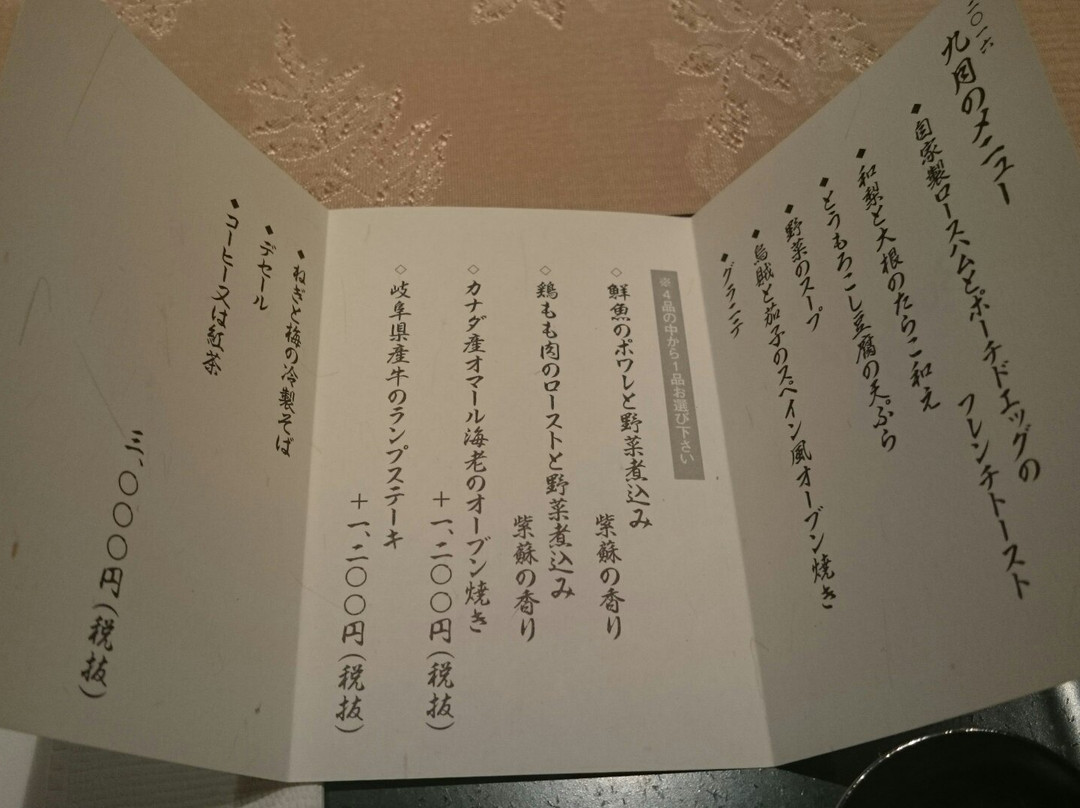 二〇一六
九月のメニュー
◆自家製ロースハムとポーチドエッグの
フレンチトースト
◆和梨と大根のたらこ和え
◆とうもろこし豆腐の天ぷら
◆野菜のスープ
◆烏賊と茄子のスペイン風オーブン焼き
◆グラニテ
※4品の中から1品お選び下さい
◇鮮魚のポワレと野菜煮込み
紫蘇の香り
◇鶏もも肉のローストと野菜煮込み
紫蘇の香り
◇カナダ産オマール海老のオーブン焼き
＋一、二〇〇円(税抜)
◇岐阜県産牛のランプステーキ
＋一、二〇〇円(税抜)
◆ねぎと梅の冷製そば
◆デセール
◆コーヒー又は紅茶
三、〇〇〇円(税抜)